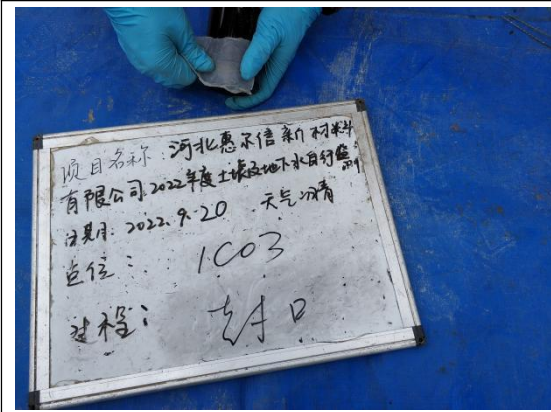 项目名称:河北惠尔信新材料
有限公司2022年度土壤及地下水自行监测
日期:2022.9.20 天气:晴
点位: 1C03
过程: 封口